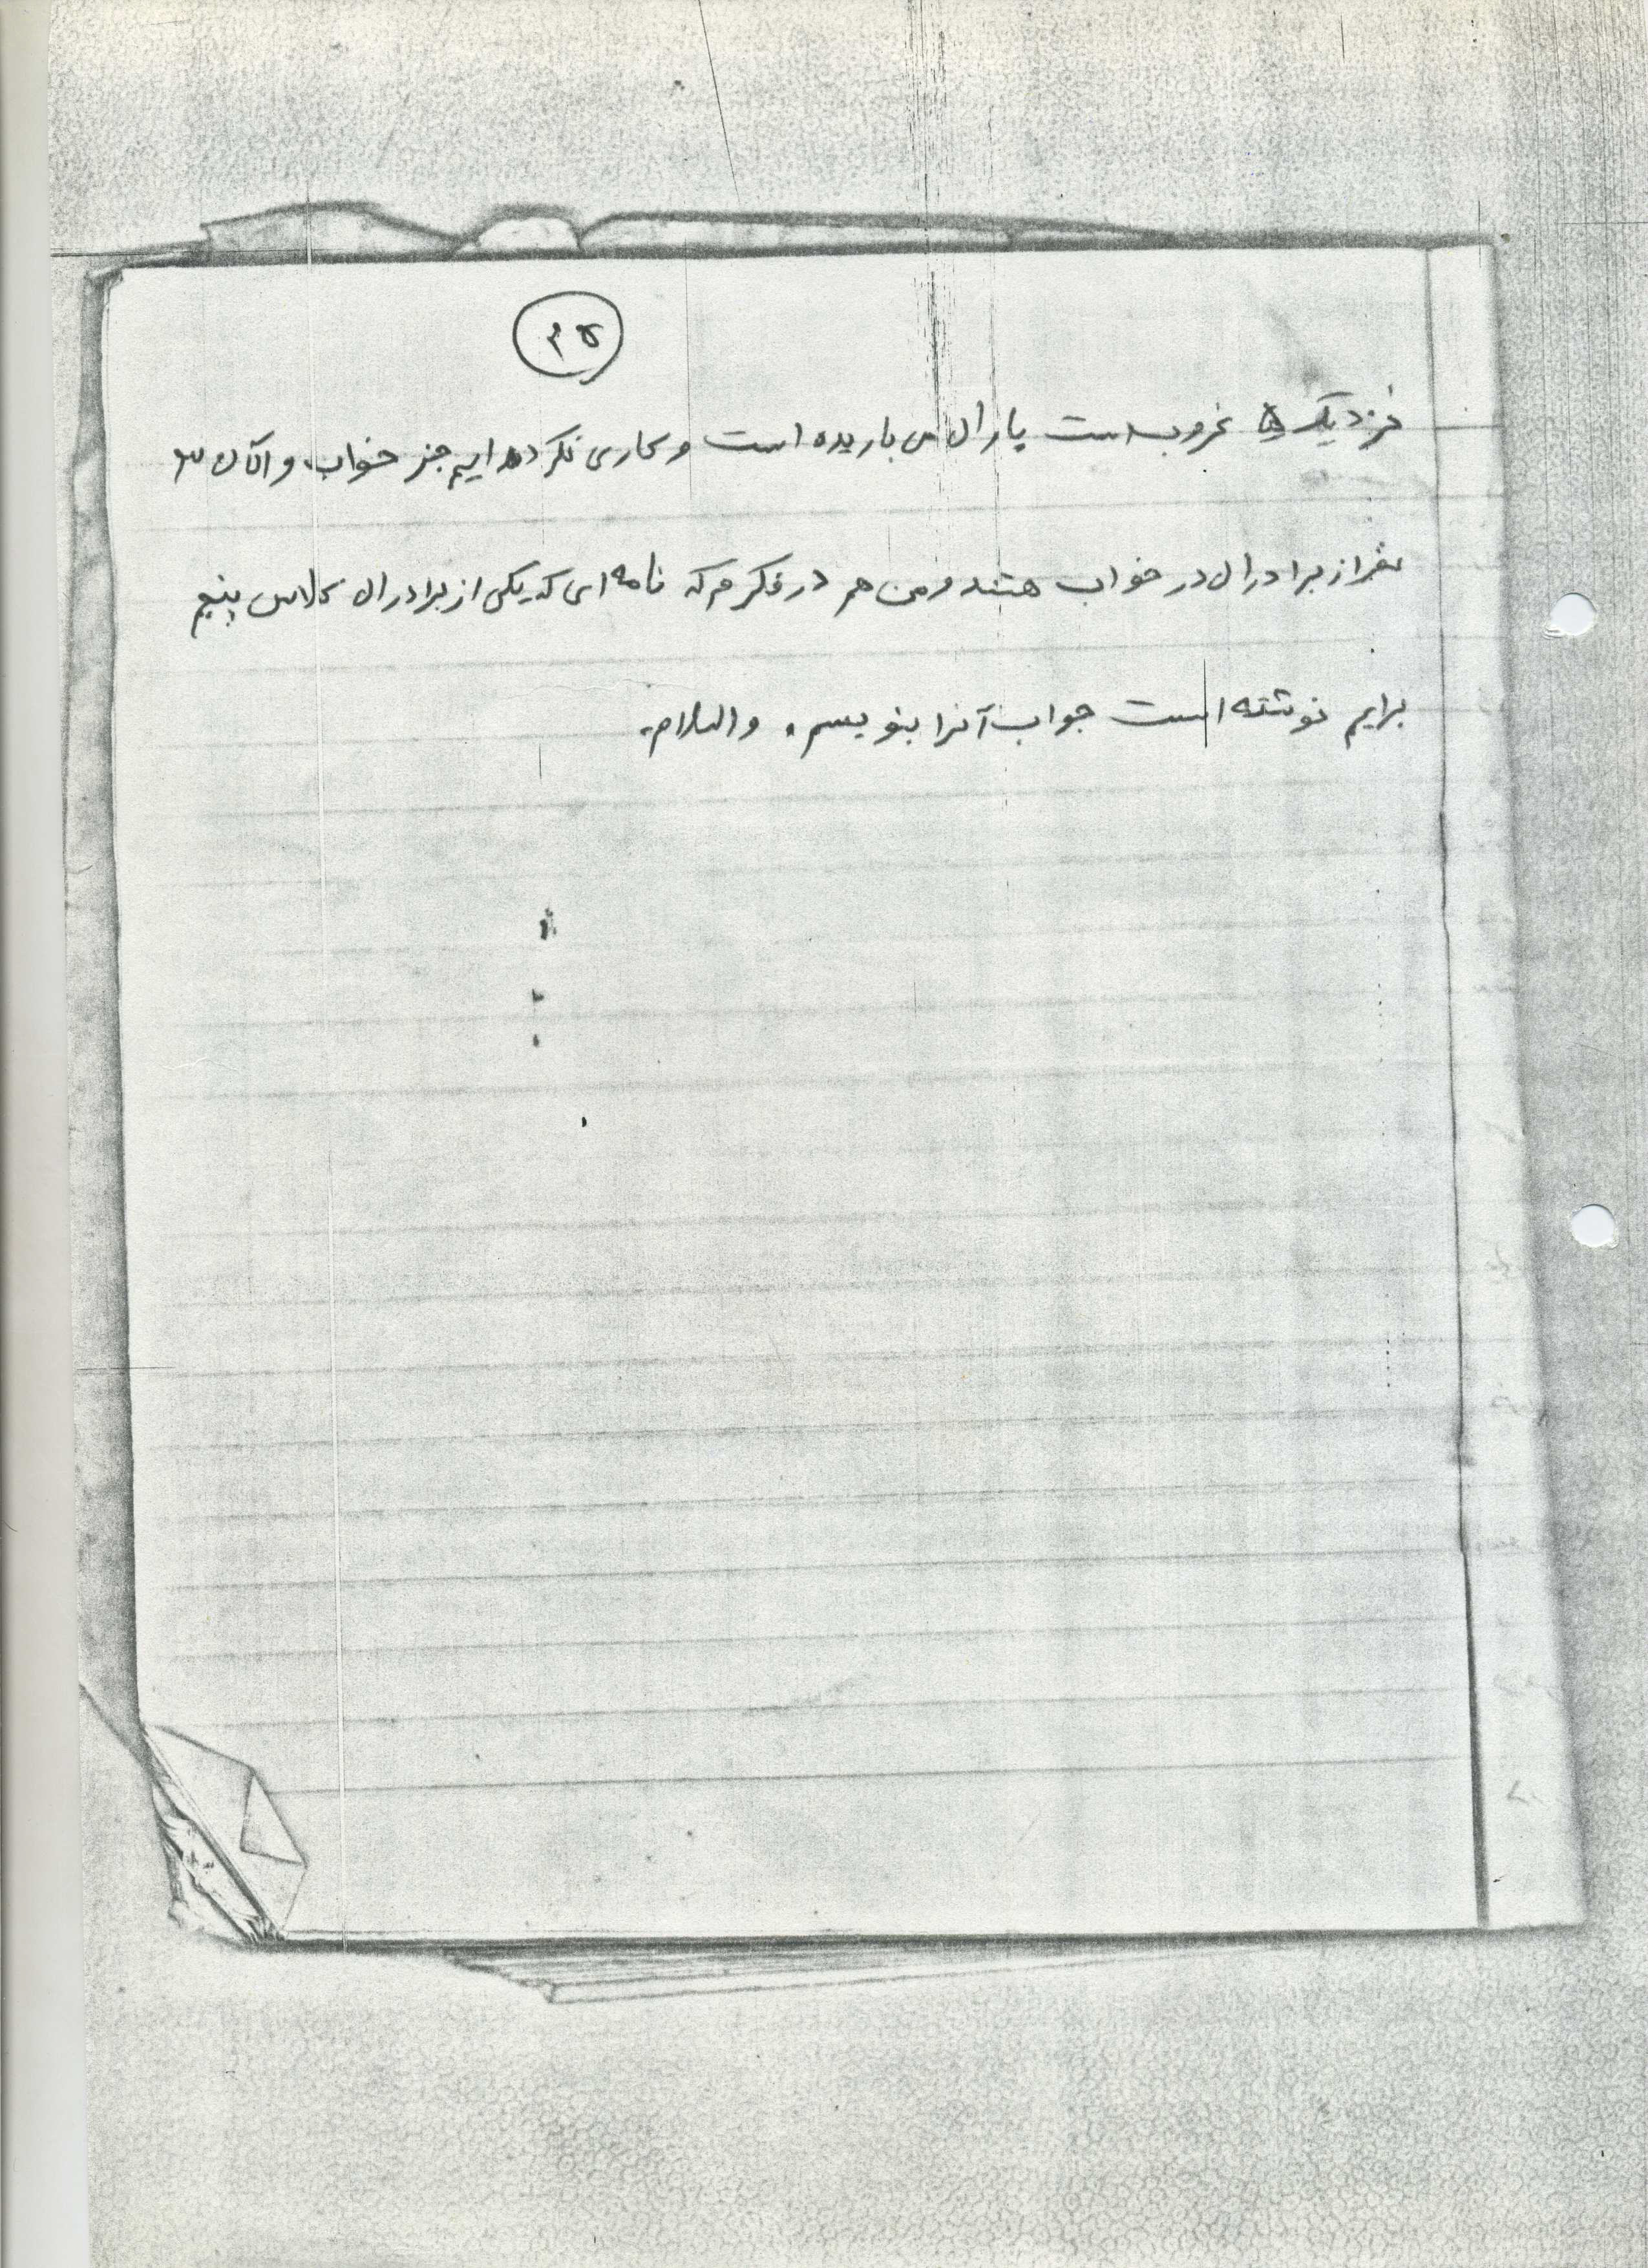 نزدیک غروب است باران می باریده است و کاری نکرده ایم جز خواب. و الان ۳
نفر از برادران در خواب هستند و من هم در فکرم که نامه ای که یکی از برادران کلاس پنجم
برایم نوشته است جواب آنرا بنویسم. والسلام.